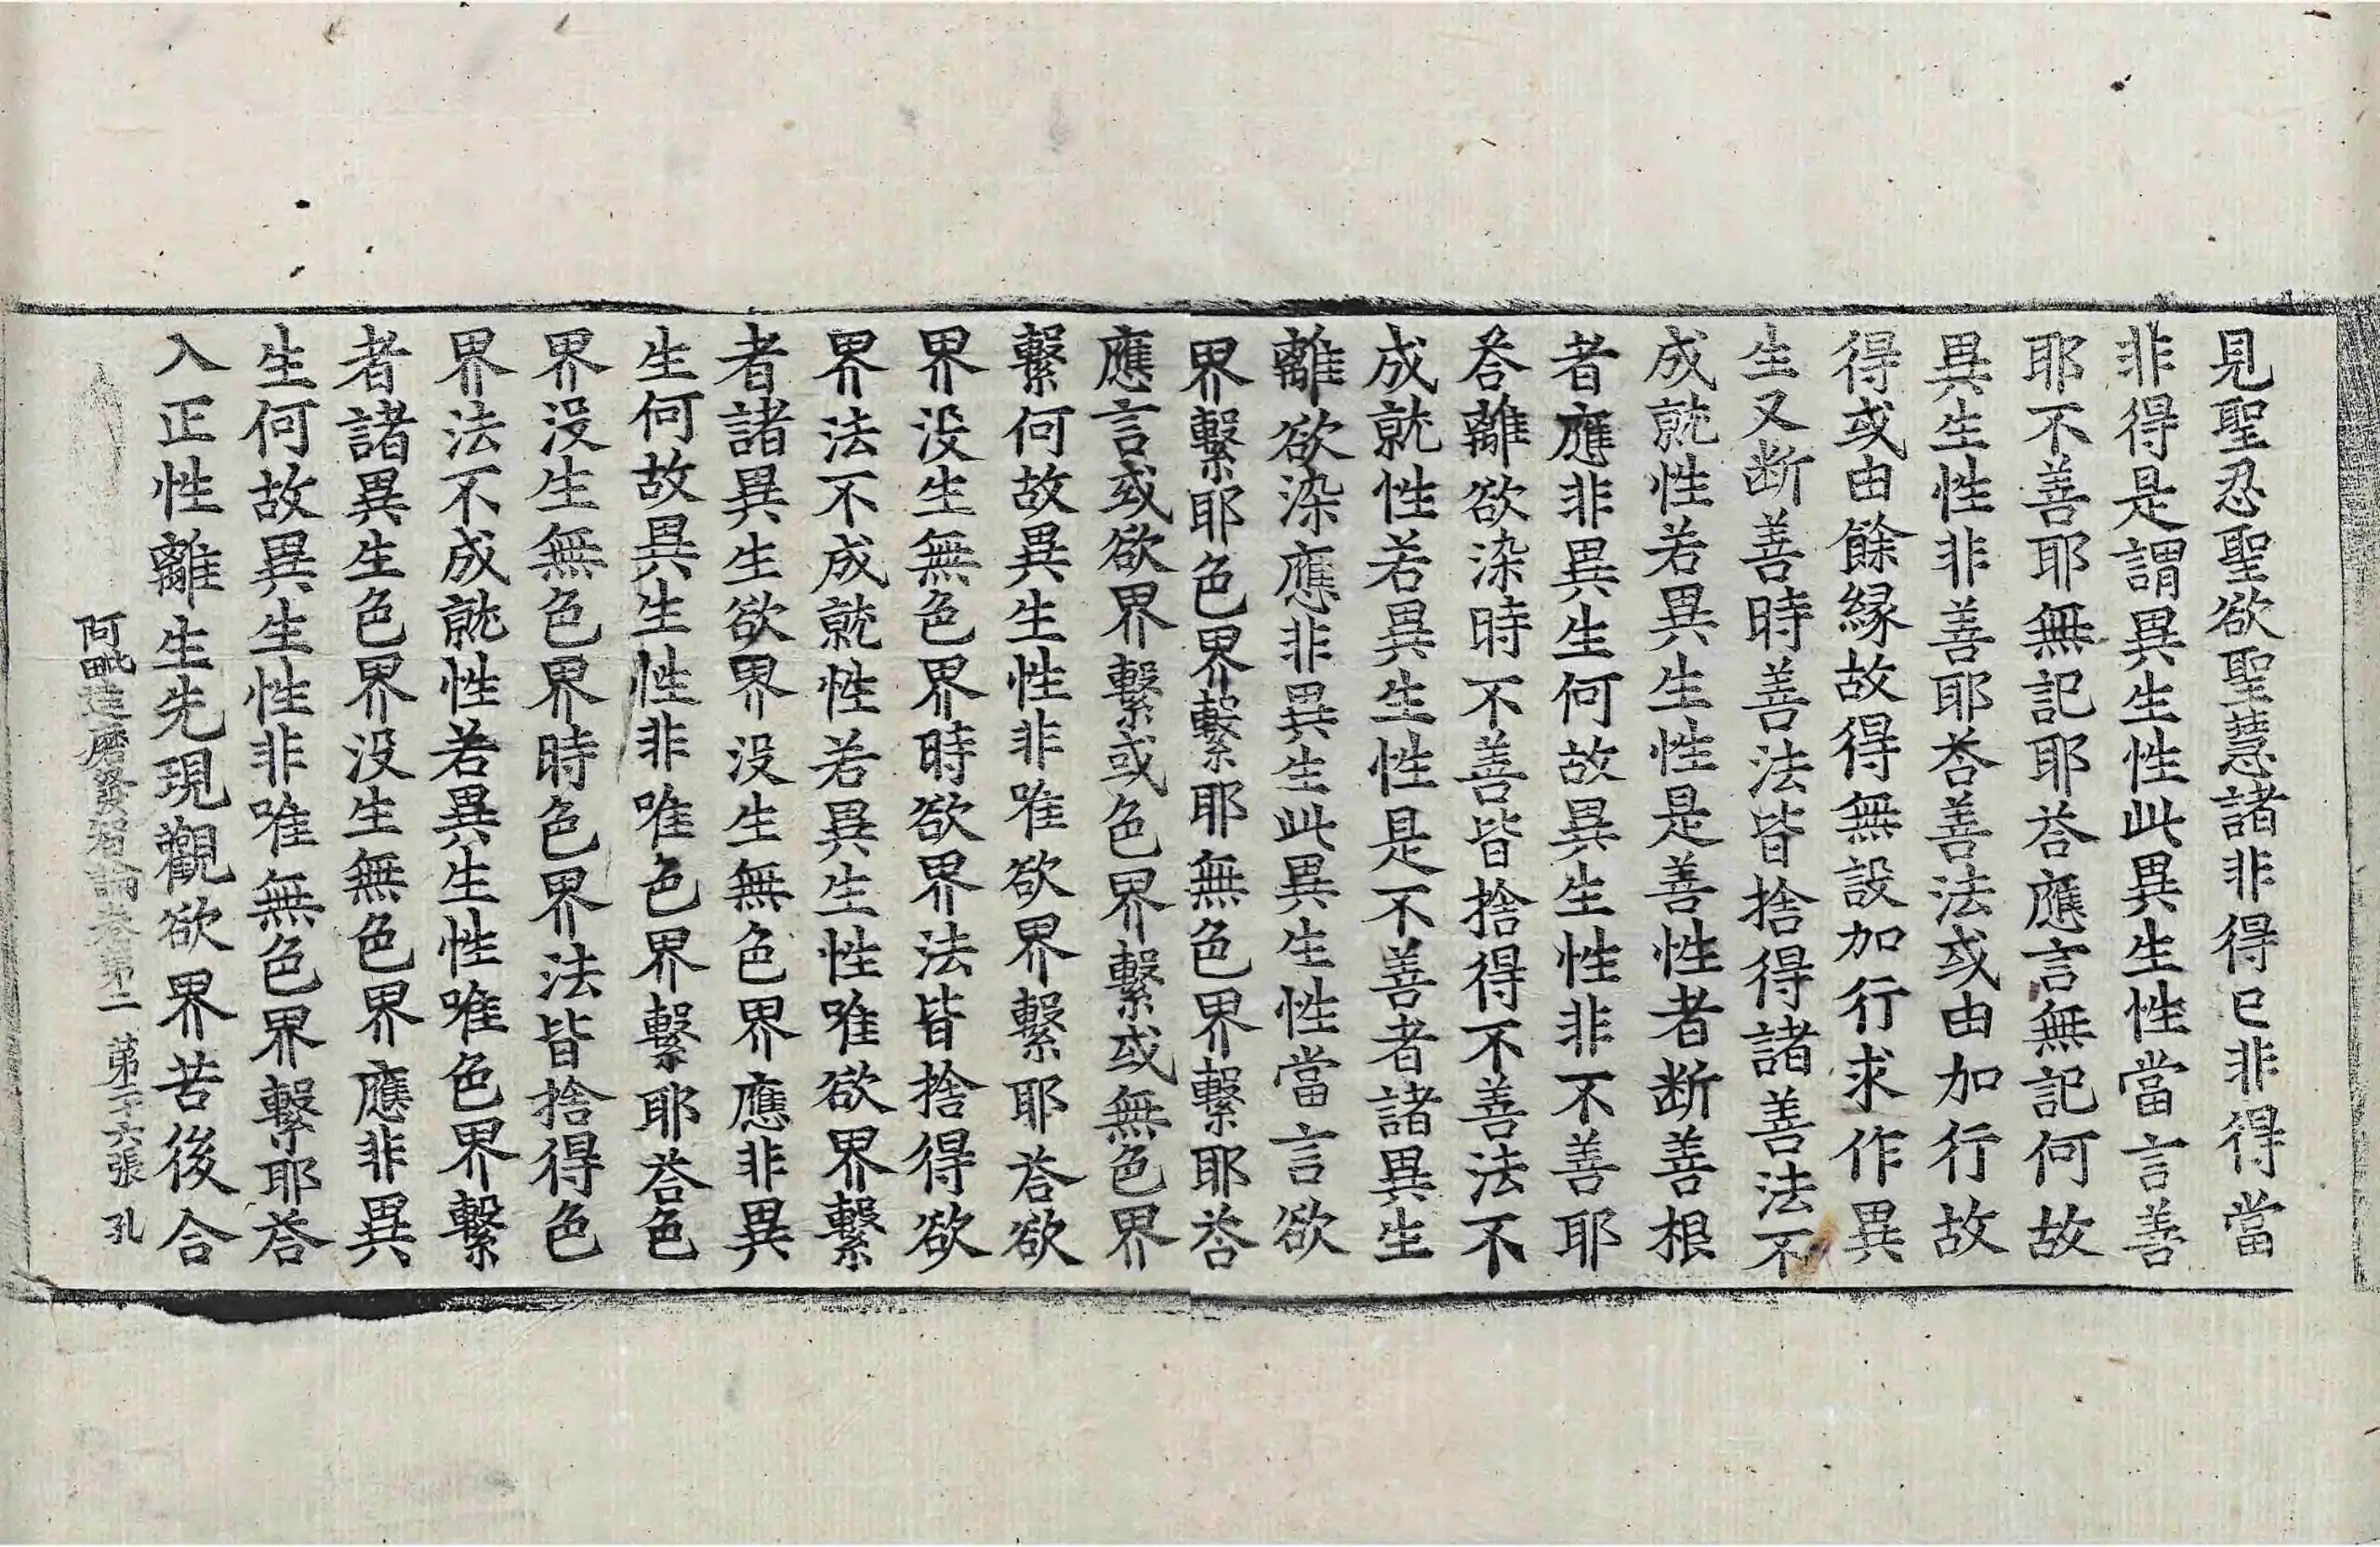 見聖忍聖欲聖慧諸非得已非得當
非得是謂異生性此異生性當言善
耶不善耶無記耶荅應言無記何故
異生性非善耶荅善法或由加行故
得或由餘縁故得無設加行求作異
生又断善時善法皆捨得諸善法不
成就性若異生性是善性者断善根
者應非異生何故異生性非不善耶
荅離欲染時不善皆捨得不善法不
成就性若異生性是不善者諸異生
離欲染應非異生此異生性當言欲
界繫耶色界繫耶無色界繫耶荅
應言或欲界繫或色界繫或無色界
繫何故異生性非唯欲界繫耶荅欲
界没生無色界時欲界法皆捨得欲
界法不成就性若異生性唯欲界繫
者諸異生欲界没生無色界應非異
生何故異生性非唯色界繫耶荅色
界没生無色界時色界法皆捨得色
界法不成就性若異生性唯色界繫
者諸異生色界没生無色界應非異
生何故異生性非唯無色界繫耶荅
入正性離生先現觀欲界苦後合
阿毗達磨發智論卷第二 第六張 孔